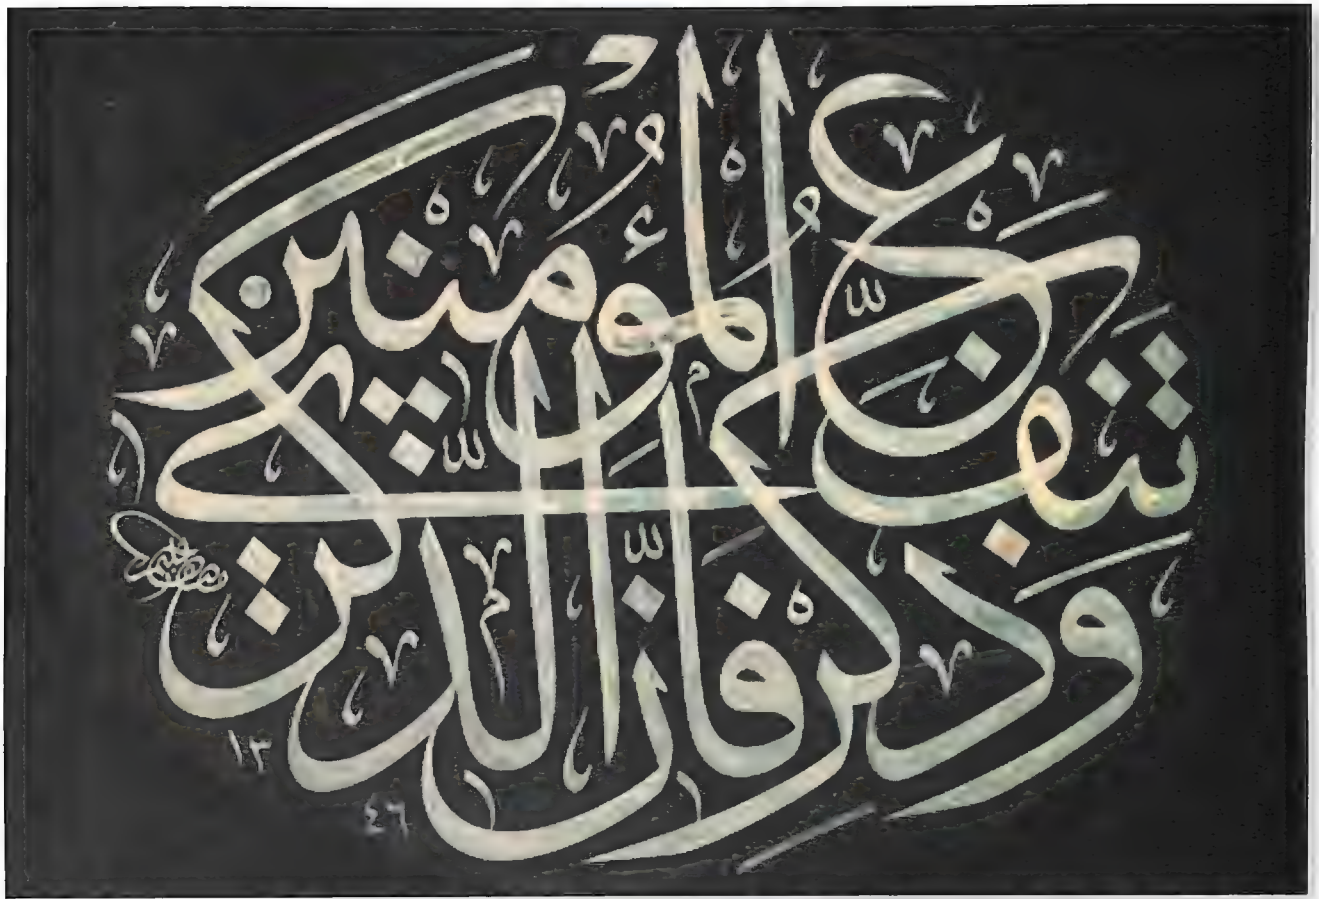 وَذَكِّرْ فَإِنَّ الذِّكْرَىٰ تَنْفَعُ الْمُؤْمِنِينَ
١٣٤٦